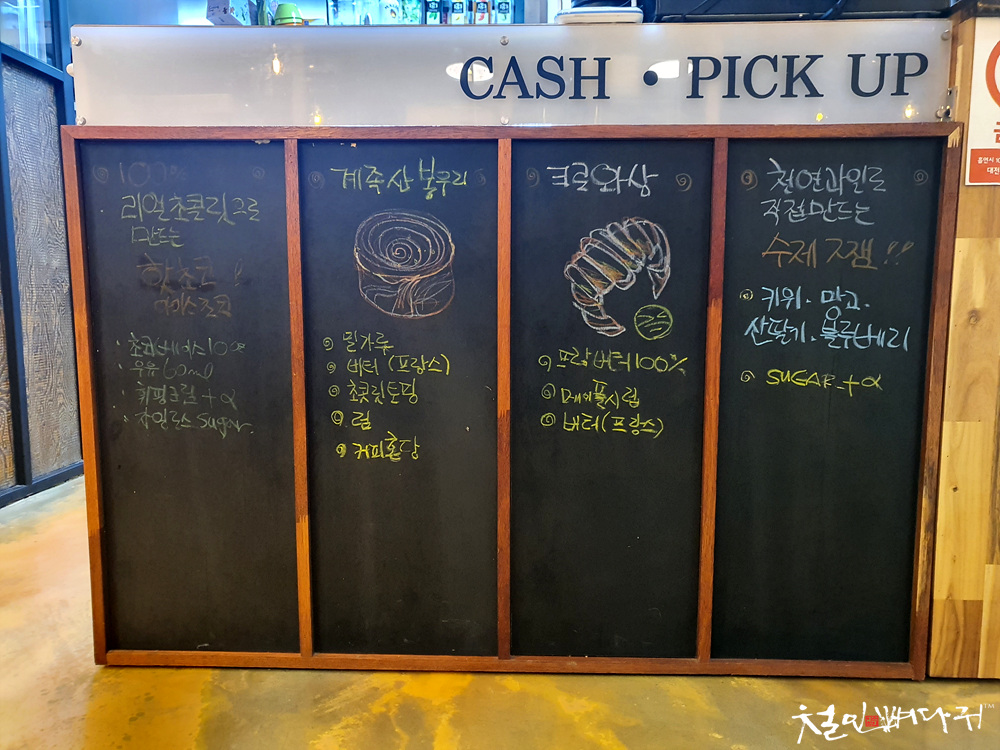 CASH • PICK UP
100%
리얼초콜릿으로
만드는
핫초코 !!
아이스초코
· 초코베이스 100%
· 우유 60ml
· 휘핑크림 + α
· 자일로스 Sugar
계족산 봉우리
밀가루
버터 (프랑스)
초콜릿토핑
럼
커피혼당
크로와상
프랑버터 100%
메이플시럽
버터 (프랑스)
천연과일로
직접만드는
수제 쨈 !!
키위 · 망고
산딸기 · 블루베리
SUGAR + α
철인뼈다귀™